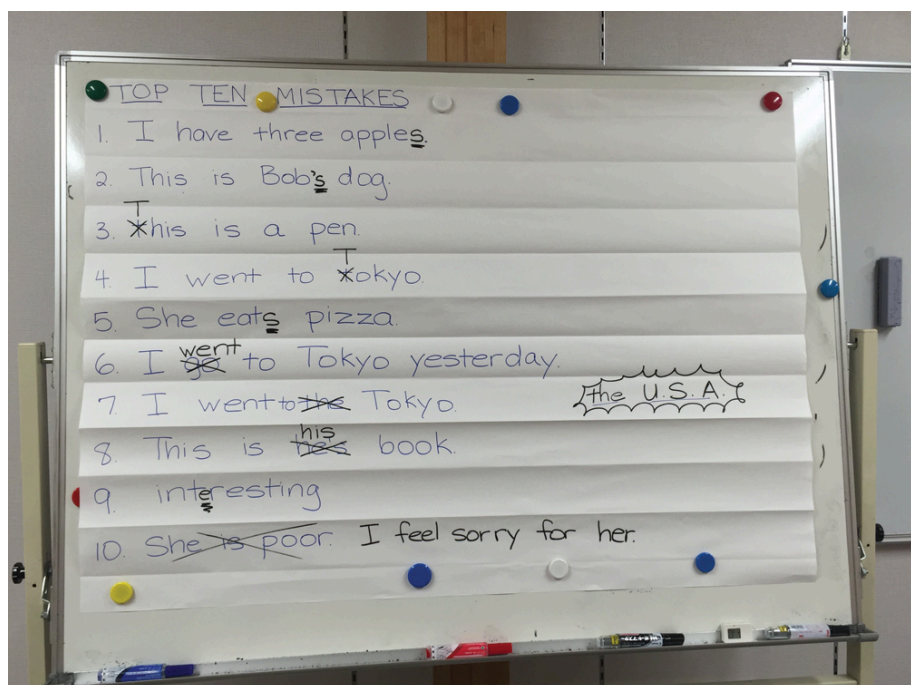 TOP TEN MISTAKES
1. I have three apples.
2. This is Bob's dog.
T
3. xhis is a pen.
T
4. I went to xokyo.
5. She eats pizza.
went
6. I go to Tokyo yesterday.
7. I went to the Tokyo.
the U.S.A.
his
8. This is he's book.
9. interesting
10. She is poor. I feel sorry for her.